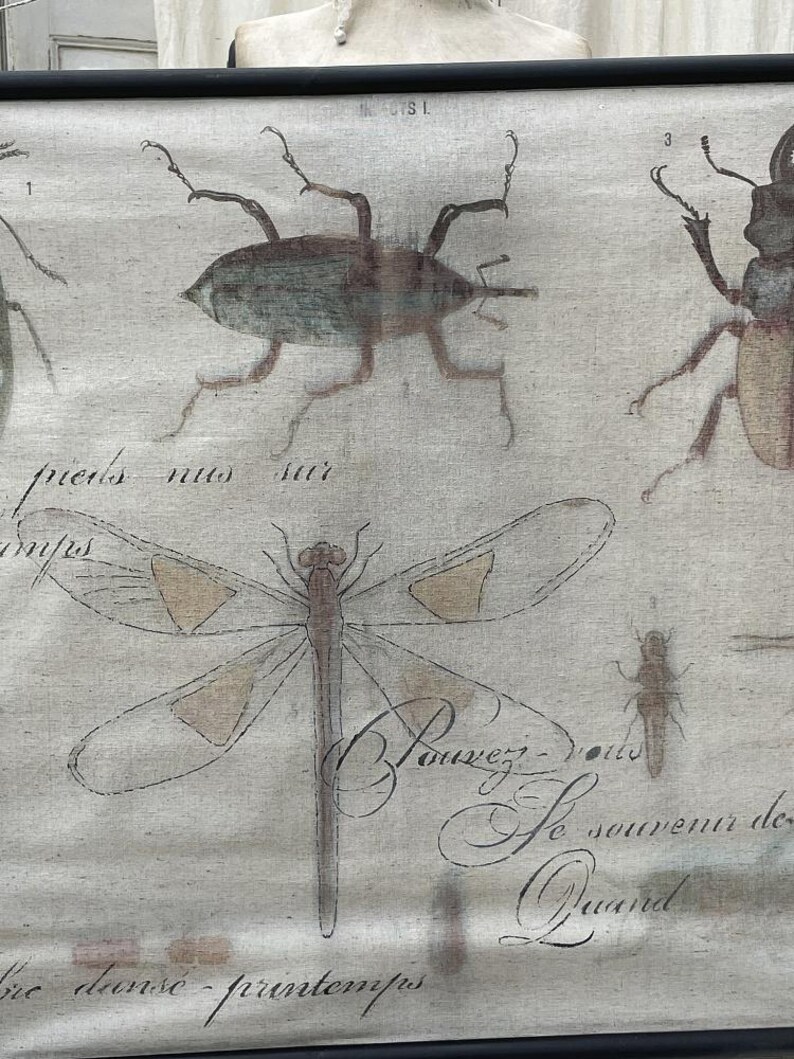 INSECTS I.
1
3
pieds nus sur
Pouvez-vous
Se souvenir de
Quand
dansé - printemps